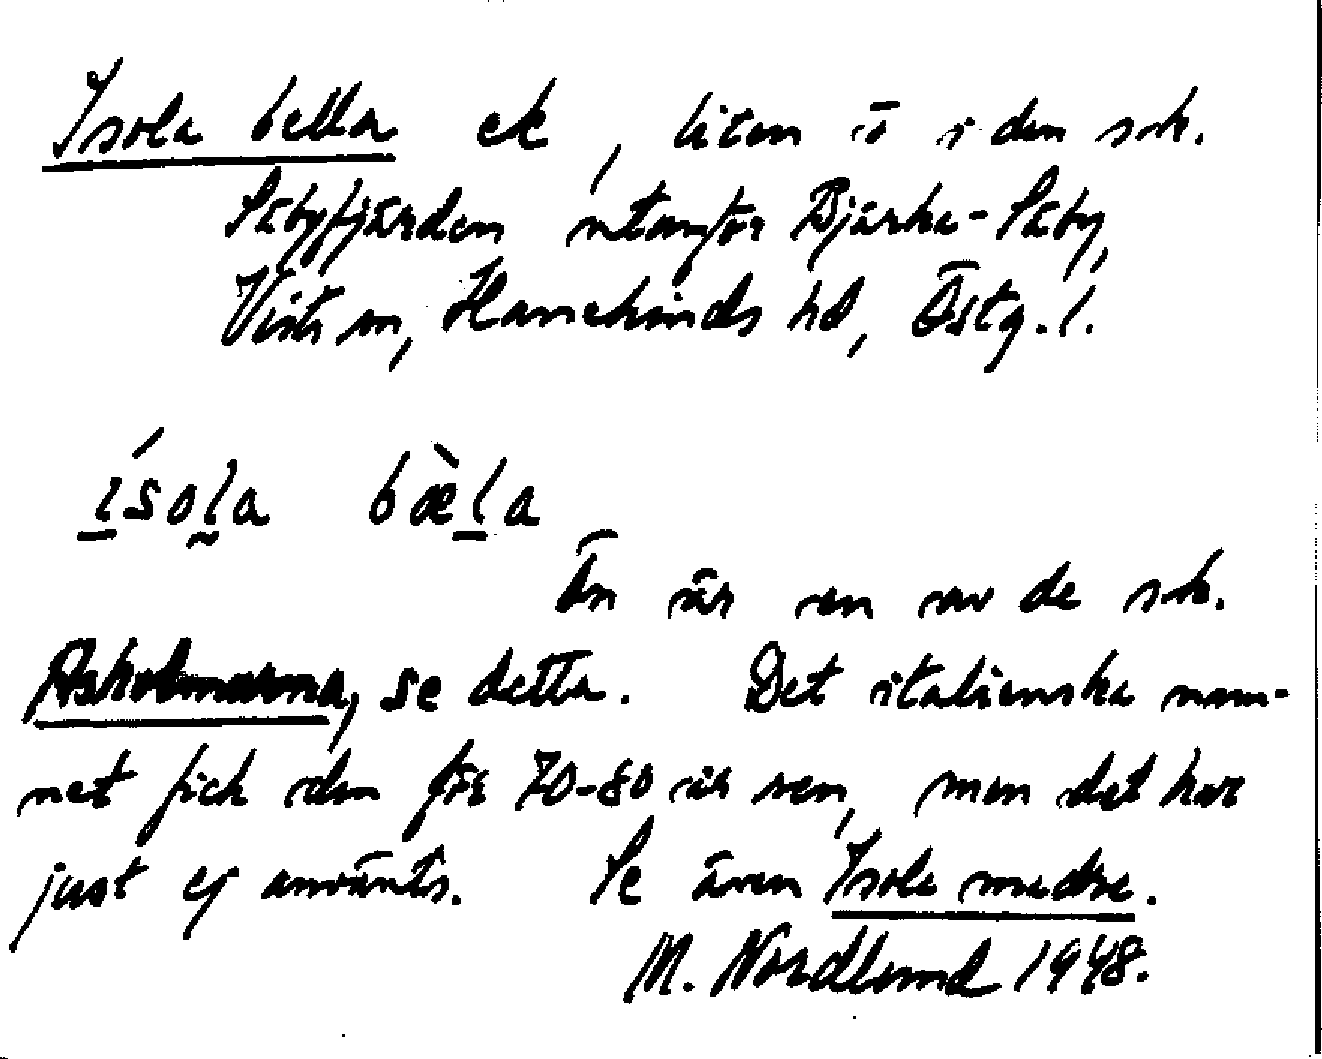 Isola bella ek, liten ö i den s.k.
Säbyfjärden utanför Bjärka-Säby,
Vists sn, Hanekinds hd, Östg. l.
ísola bæ̀la
Ön är en av de s.k.
Askholmarna, se detta. Det italienska nam-
net fick den för 70-80 år sen, men det har
just ej använts. Se även Isola madre.
M. Nordlund 1948.